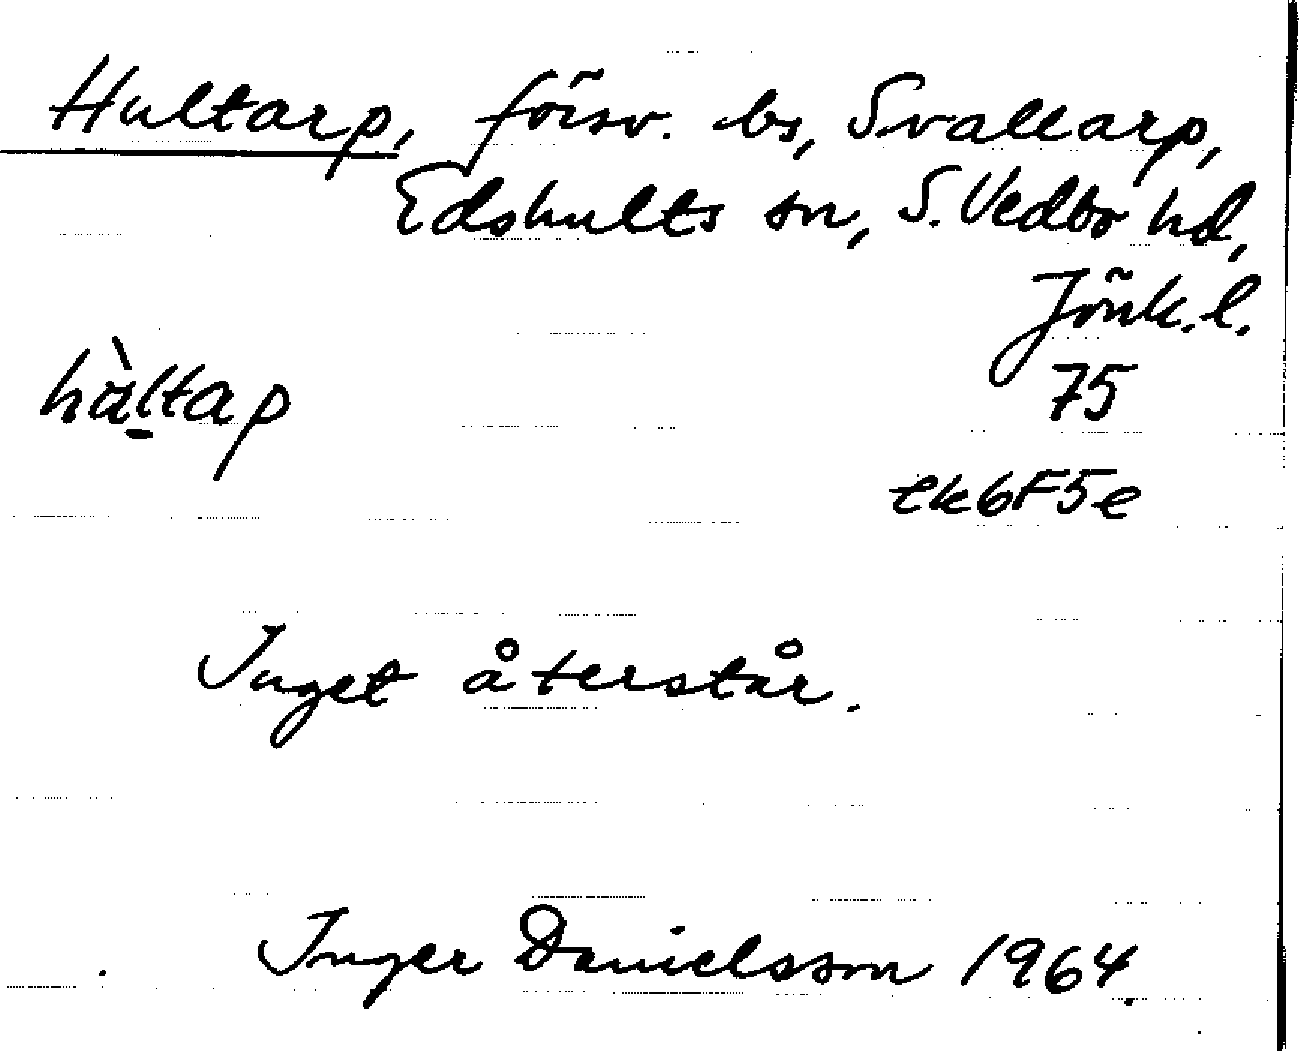 Hultarp, försv. bs, Svallarp,
Edshults sn, S. Vedbo hd,
Jönk. l.
hàltap 75
ek6F5e
Inget återstår.
Inger Danielsson 1964.